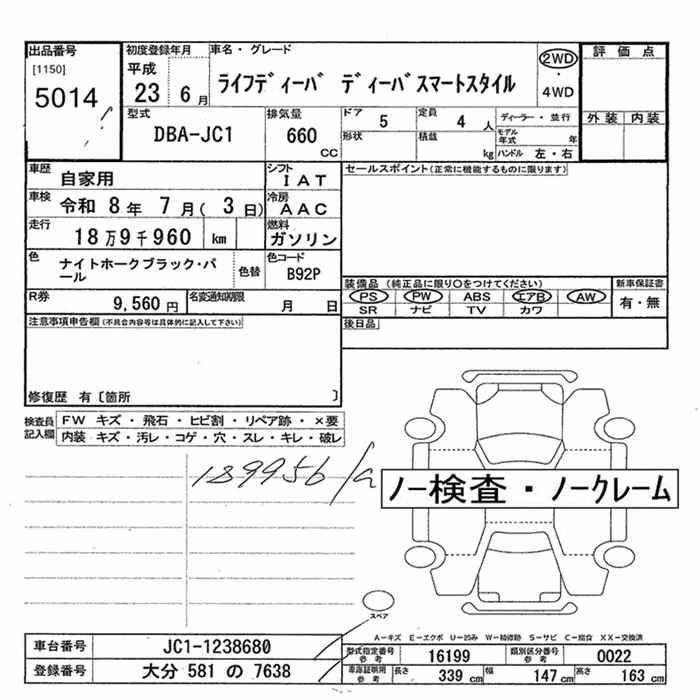 出品番号 初度登録年月 車名・グレード 評価点
[1150] 平成 ライフディーバ ディーバスマートスタイル 2WD
5014 23 6月 ・4WD
外装 内装
型式 排気量 ドア 5 定員 4人 ディーラー・並行
DBA-JC1 660 CC 形状 積載 kg モデル年式 年
ハンドル 左・右
車歴 自家用 シフト IAT セールスポイント(正常に機能するものに限ります)
車検 令和 8年 7月( 3日) 冷房 AAC
走行 18万9千960 km 燃料 ガソリン
色 ナイトホークブラック・パール 色替 色コード B92P
装備品(純正品に限り○をつけてください) 新車保証書
PS PW ABS エアB AW 有・無
SR ナビ TV カワ
R券 9,560円 名変通知期限 月 日
後日品
注意事項申告欄(不具合内容等は具体的に記入して下さい)
修復歴 有〔箇所 〕
検査員記入欄 FW キズ・飛石・ヒビ割・リペア跡・×要
内装 キズ・汚レ・コゲ・穴・スレ・キレ・破レ
189956
ノー検査・ノークレーム
スペア
A―キズ E―エクボ U―凹み W―補修跡 S―サビ C―腐食 XX―交換済
車台番号 JC1-1238680 型式指定番号 参考 16199 類別区分番号 参考 0022
登録番号 大分 581 の 7638 車庫証明用 参考 長さ 339 cm 幅 147 cm 高さ 163 cm